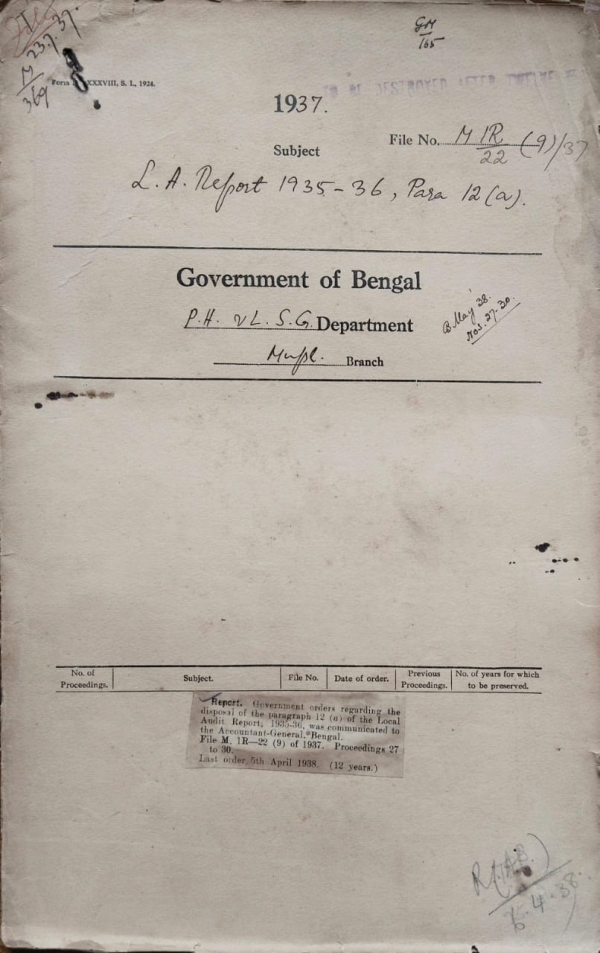 23.7.37.
M
369
GM
165
XXXVIII, S. I., 1924.
TO BE DESTROYED AFTER TWELVE
1937.
File No. M 1R/22 (9)/37
Subject
L. A. Report 1935-36, Para 12(a).
Government of Bengal
P.H. & L. S. G. Department
B May '38.
Nos. 27-30.
Mufsl. Branch
No. of Proceedings.
Subject.
File No.
Date of order.
Previous Proceedings.
No. of years for which to be preserved.
Report. Government orders regarding the
disposal of the paragraph 12 (a) of the Local
Audit Report, 1935-36, was communicated to
the Accountant-General, Bengal.
File M. 1R—22 (9) of 1937. Proceedings 27
to 30.
Last order, 5th April 1938. (12 years.)
4.38.